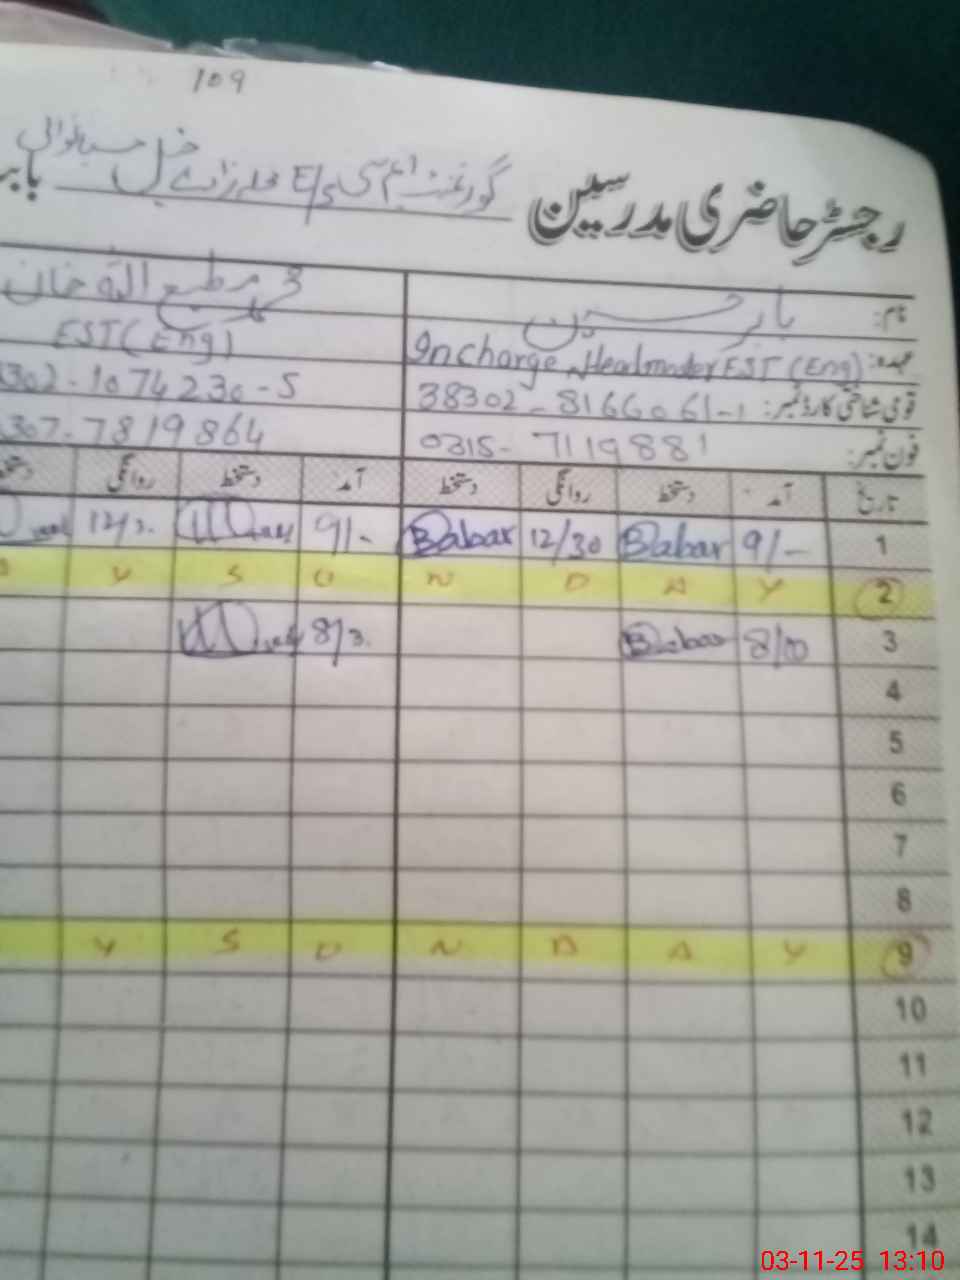 109
رجسٹر حاضری مدرسین گورنمنٹ ایم سی E/S محلہ زادے خیل میانوالی
نام: بابر حسین محمد مطیع اللہ خان
عہدہ: Incharge Headmaster EST (Eng) EST (Eng)
قومی شناختی کارڈ نمبر: 38302-8166061-1 302-1074230-5
فون نمبر: 0315-7119881 307-7819864
تاریخ آمد دستخط روانگی دستخط آمد دستخط روانگی
1 9/- Babar 12/30 Babar 9/- 12/3.
2 Y A D N U S Y
3 8/00 Babar 8/3.
4
5
6
7
8
9 Y A D N U S Y
10
11
12
13
14
03-11-25 13:10